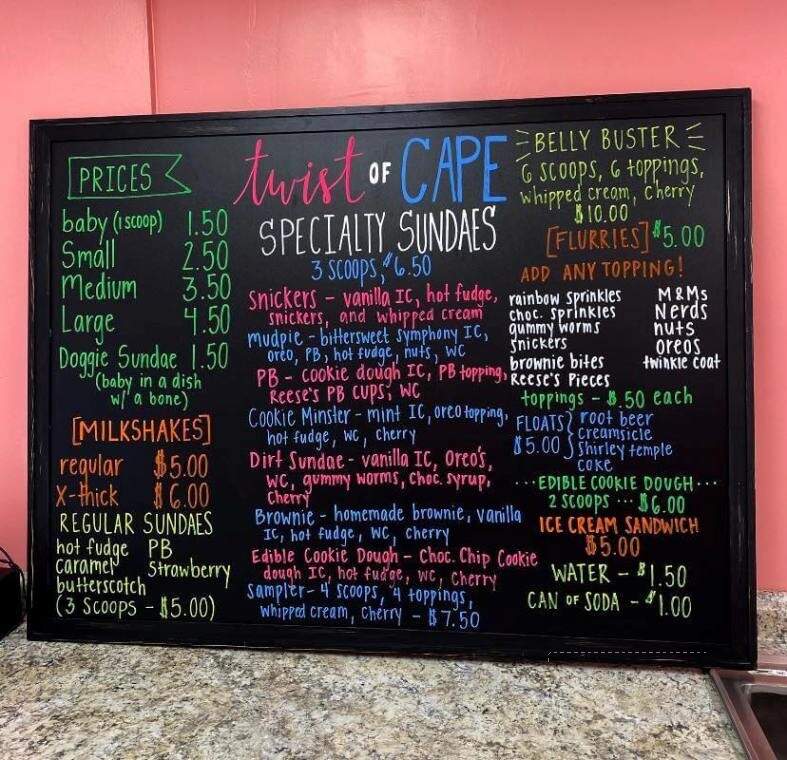 PRICES
baby (1 scoop) 1.50
Small 2.50
Medium 3.50
Large 4.50
Doggie Sundae 1.50
(baby in a dish
w/ a bone)
[MILKSHAKES]
regular $5.00
X-thick $6.00
REGULAR SUNDAES
hot fudge PB
caramel Strawberry
butterscotch
(3 SCOOPS - $5.00)
twist OF CAPE
SPECIALTY SUNDAES
3 SCOOPS, $6.50
Snickers - vanilla IC, hot fudge,
snickers, and whipped cream
mudpie - bittersweet symphony IC,
oreo, PB, hot fudge, nuts, WC
PB - cookie dough IC, PB topping,
Reese's PB cups, WC
Cookie Minster - mint IC, oreo topping,
hot fudge, WC, cherry
Dirt Sundae - vanilla IC, Oreo's,
WC, gummy worms, choc. syrup,
cherry
Brownie - homemade brownie, vanilla
IC, hot fudge, WC, cherry
Edible Cookie Dough - Choc. Chip Cookie
dough IC, hot fudge, WC, cherry
Sampler - 4 scoops, 4 toppings,
whipped cream, cherry - $7.50
BELLY BUSTER
6 scoops, 6 toppings,
whipped cream, cherry
$10.00
[FLURRIES] $5.00
ADD ANY TOPPING!
rainbow sprinkles M&Ms
choc. sprinkles Nerds
gummy worms nuts
snickers oreos
brownie bites twinkle coat
Reese's Pieces
toppings - $.50 each
FLOATS root beer
$5.00 creamsicle
shirley temple
coke
...EDIBLE COOKIE DOUGH...
2 SCOOPS ... $6.00
ICE CREAM SANDWICH
$5.00
WATER - $1.50
CAN OF SODA - $1.00